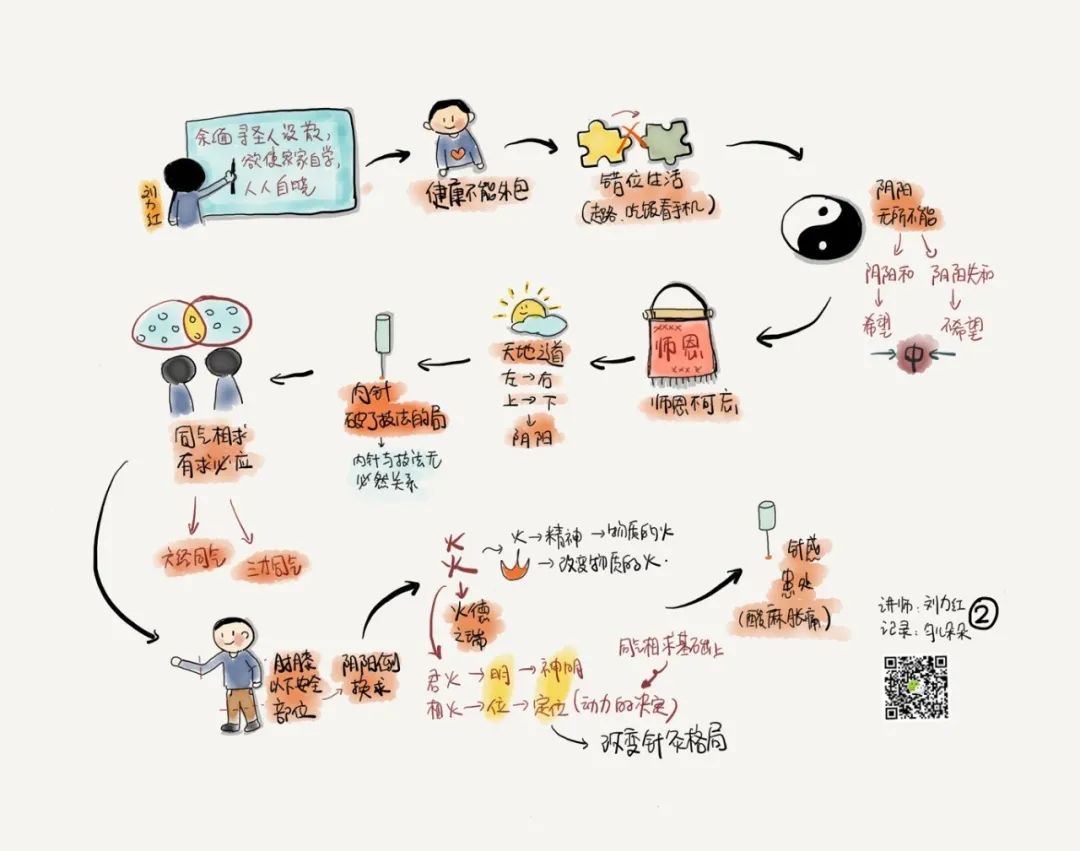 刘力红
余缅寻圣人设教,
欲使家家自学,
人人自晓
健康不能外包
错位生活
(走路、吃饭看手机)
阴阳
无所不能
阴阳和
阴阳失和
希望
不希望
中
师恩
师恩不可忘
天地之道
左→右
上→下
阴阳
内针
破了技法的局
内针与技法无
必然关系
同气相求
有求必应
六经同气
三才同气
肘膝
以下安全
部位
阴阳倒
换求
火
火→精神→物质的火
→改变物质的火.
火德
之端
君火→明→神明
相火→位→定位(动力的决定)
同气相求基础上
改变针灸格局
针感
患处
(酸麻胀痛)
讲师:刘力红
记录:
②